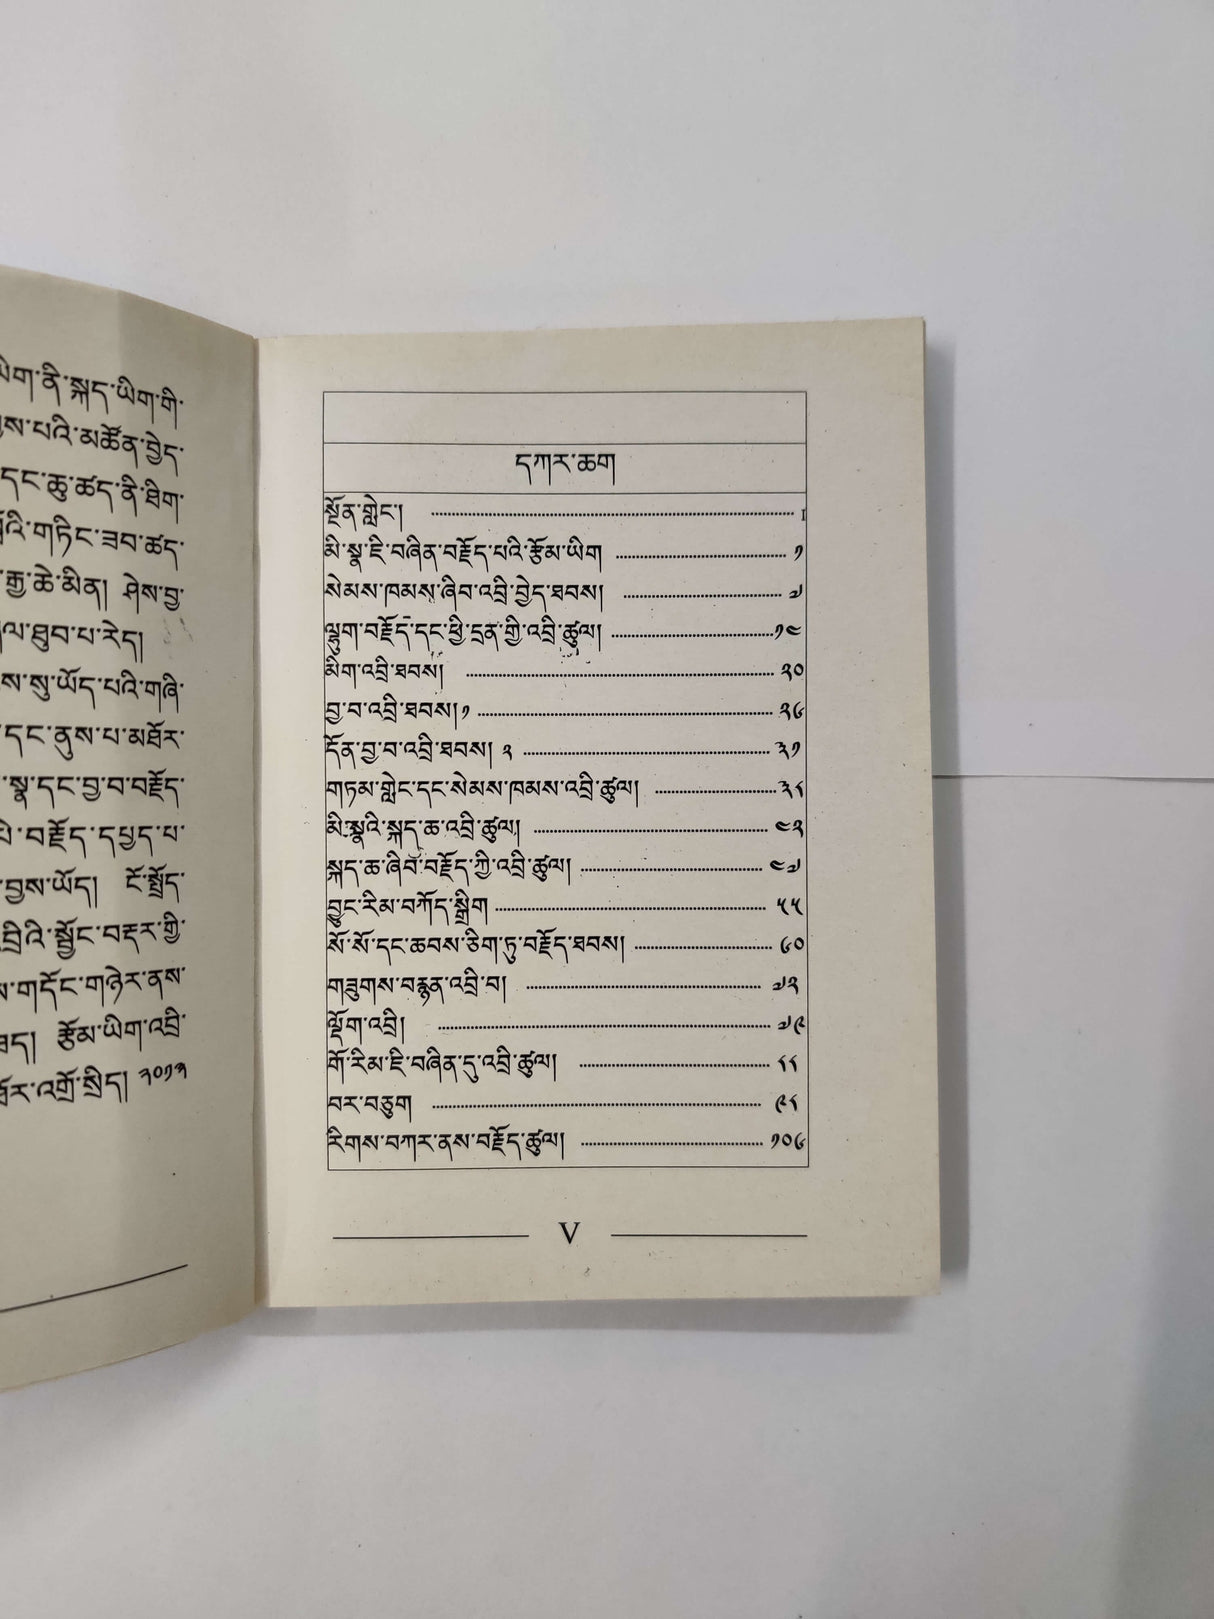 ཡིག་ནི་སྐད་ཡིག་གི་
པའི་མཚོན་བྱེད་
དང་ཆུ་ཚད་ནི་ཐིག་
གཏིང་ཟབ་ཚད་
རྒྱ་ཆེ་མིན། ཤེས་བྱ་
ཐུབ་པ་རེད།
སུ་ཡོད་པའི་གཞི་
དང་ནུས་པ་མཐོར་
སྣ་དང་བྱ་བ་བརྗོད་
བརྗོད་དཔྱད་པ་
བྱས་ཡོད། ངོ་སྤྲོད་
སྦྱོང་བརྡར་གྱི་
གདོང་གཉེར་ནས་
རྩོམ་ཡིག་འབྲི་
འགྲོ་སྲིད། ༢༠༡༣
དཀར་ཆག
སྔོན་གླེང་། I
མི་སྣ་ཇི་བཞིན་བརྗོད་པའི་རྩོམ་ཡིག ༡
སེམས་ཁམས་ཞིབ་འབྲི་བྱེད་ཐབས། ༧
ལྷུག་བརྗོད་དང་ཕྱི་དྲན་གྱི་འབྲི་ཚུལ། ༡༤
མིག་འབྲི་ཐབས། ༢༠
བྱ་བ་འབྲི་ཐབས། ༡ ༢༦
དོན་བྱ་བ་འབྲི་ཐབས། ༢ ༣༡
གཏམ་གླེང་དང་སེམས་ཁམས་འབྲི་ཚུལ། ༣༨
མི་སྣའི་སྐད་ཆ་འབྲི་ཚུལ། ༤༢
སྐད་ཆ་ཞིབ་བརྗོད་ཀྱི་འབྲི་ཚུལ། ༤༧
བྱུང་རིམ་བཀོད་སྒྲིག ༥༥
སོ་སོ་དང་ཆབས་ཅིག་ཏུ་བརྗོད་ཐབས། ༦༠
གཟུགས་བརྙན་འབྲི་བ། ༧༢
ལྡོག་འབྲི། ༧༩
གོ་རིམ་ཇི་བཞིན་དུ་འབྲི་ཚུལ། ༨༨
བར་བཅུག ༩༨
རིགས་བཀར་ནས་བརྗོད་ཚུལ། ༡༠༦
V